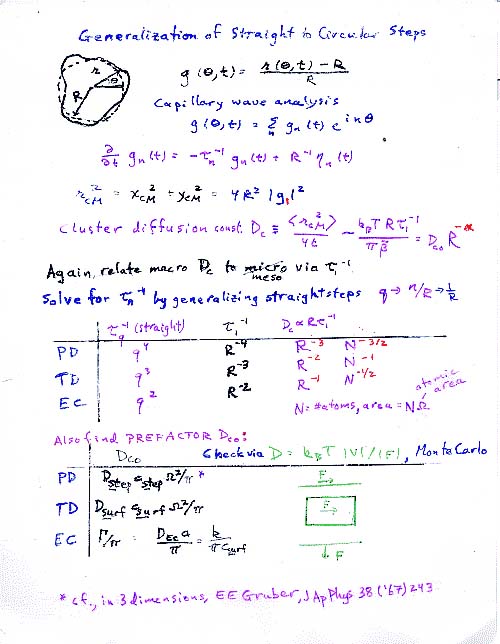 Generalization of Straight to Circular Steps
r
R
θ
g(θ,t) = r(θ,t) - R / R
Capillary wave analysis
g(θ,t) = Σn gn(t) e^inθ
∂/∂t gn(t) = -τn^-1 gn(t) + R^-1 ηn(t)
rCM^2 = xCM^2 + yCM^2 = 4R^2 |g1|^2
Cluster diffusion const. Dc ≡ <rCM^2> / 4t ~ kBT R τ1^-1 / π β̃ = Dco R^-α
Again, relate macro Dc to micro via τ1^-1
meso
Solve for τn^-1 by generalizing straight steps q → n/R → 1/R
τq^-1 (straight) τ1^-1 Dc ∝ R τ1^-1
PD q^4 R^-4 R^-3 N^-3/2
TD q^3 R^-3 R^-2 N^-1
EC q^2 R^-2 R^-1 N^-1/2
atomic area
N = # atoms, area = NΩ
Also find PREFACTOR Dco:
Dco Check via D = kBT |V|/|F|, Monte Carlo
PD Dstep cstep Ω^2/π * F→
TD Dsurf csurf Ω^2/π F→
EC Γ/π = DEC a / π = k / π csurf ↓F
* cf., in 3 dimensions, EE Gruber, J Ap Phys 38 ('67) 243